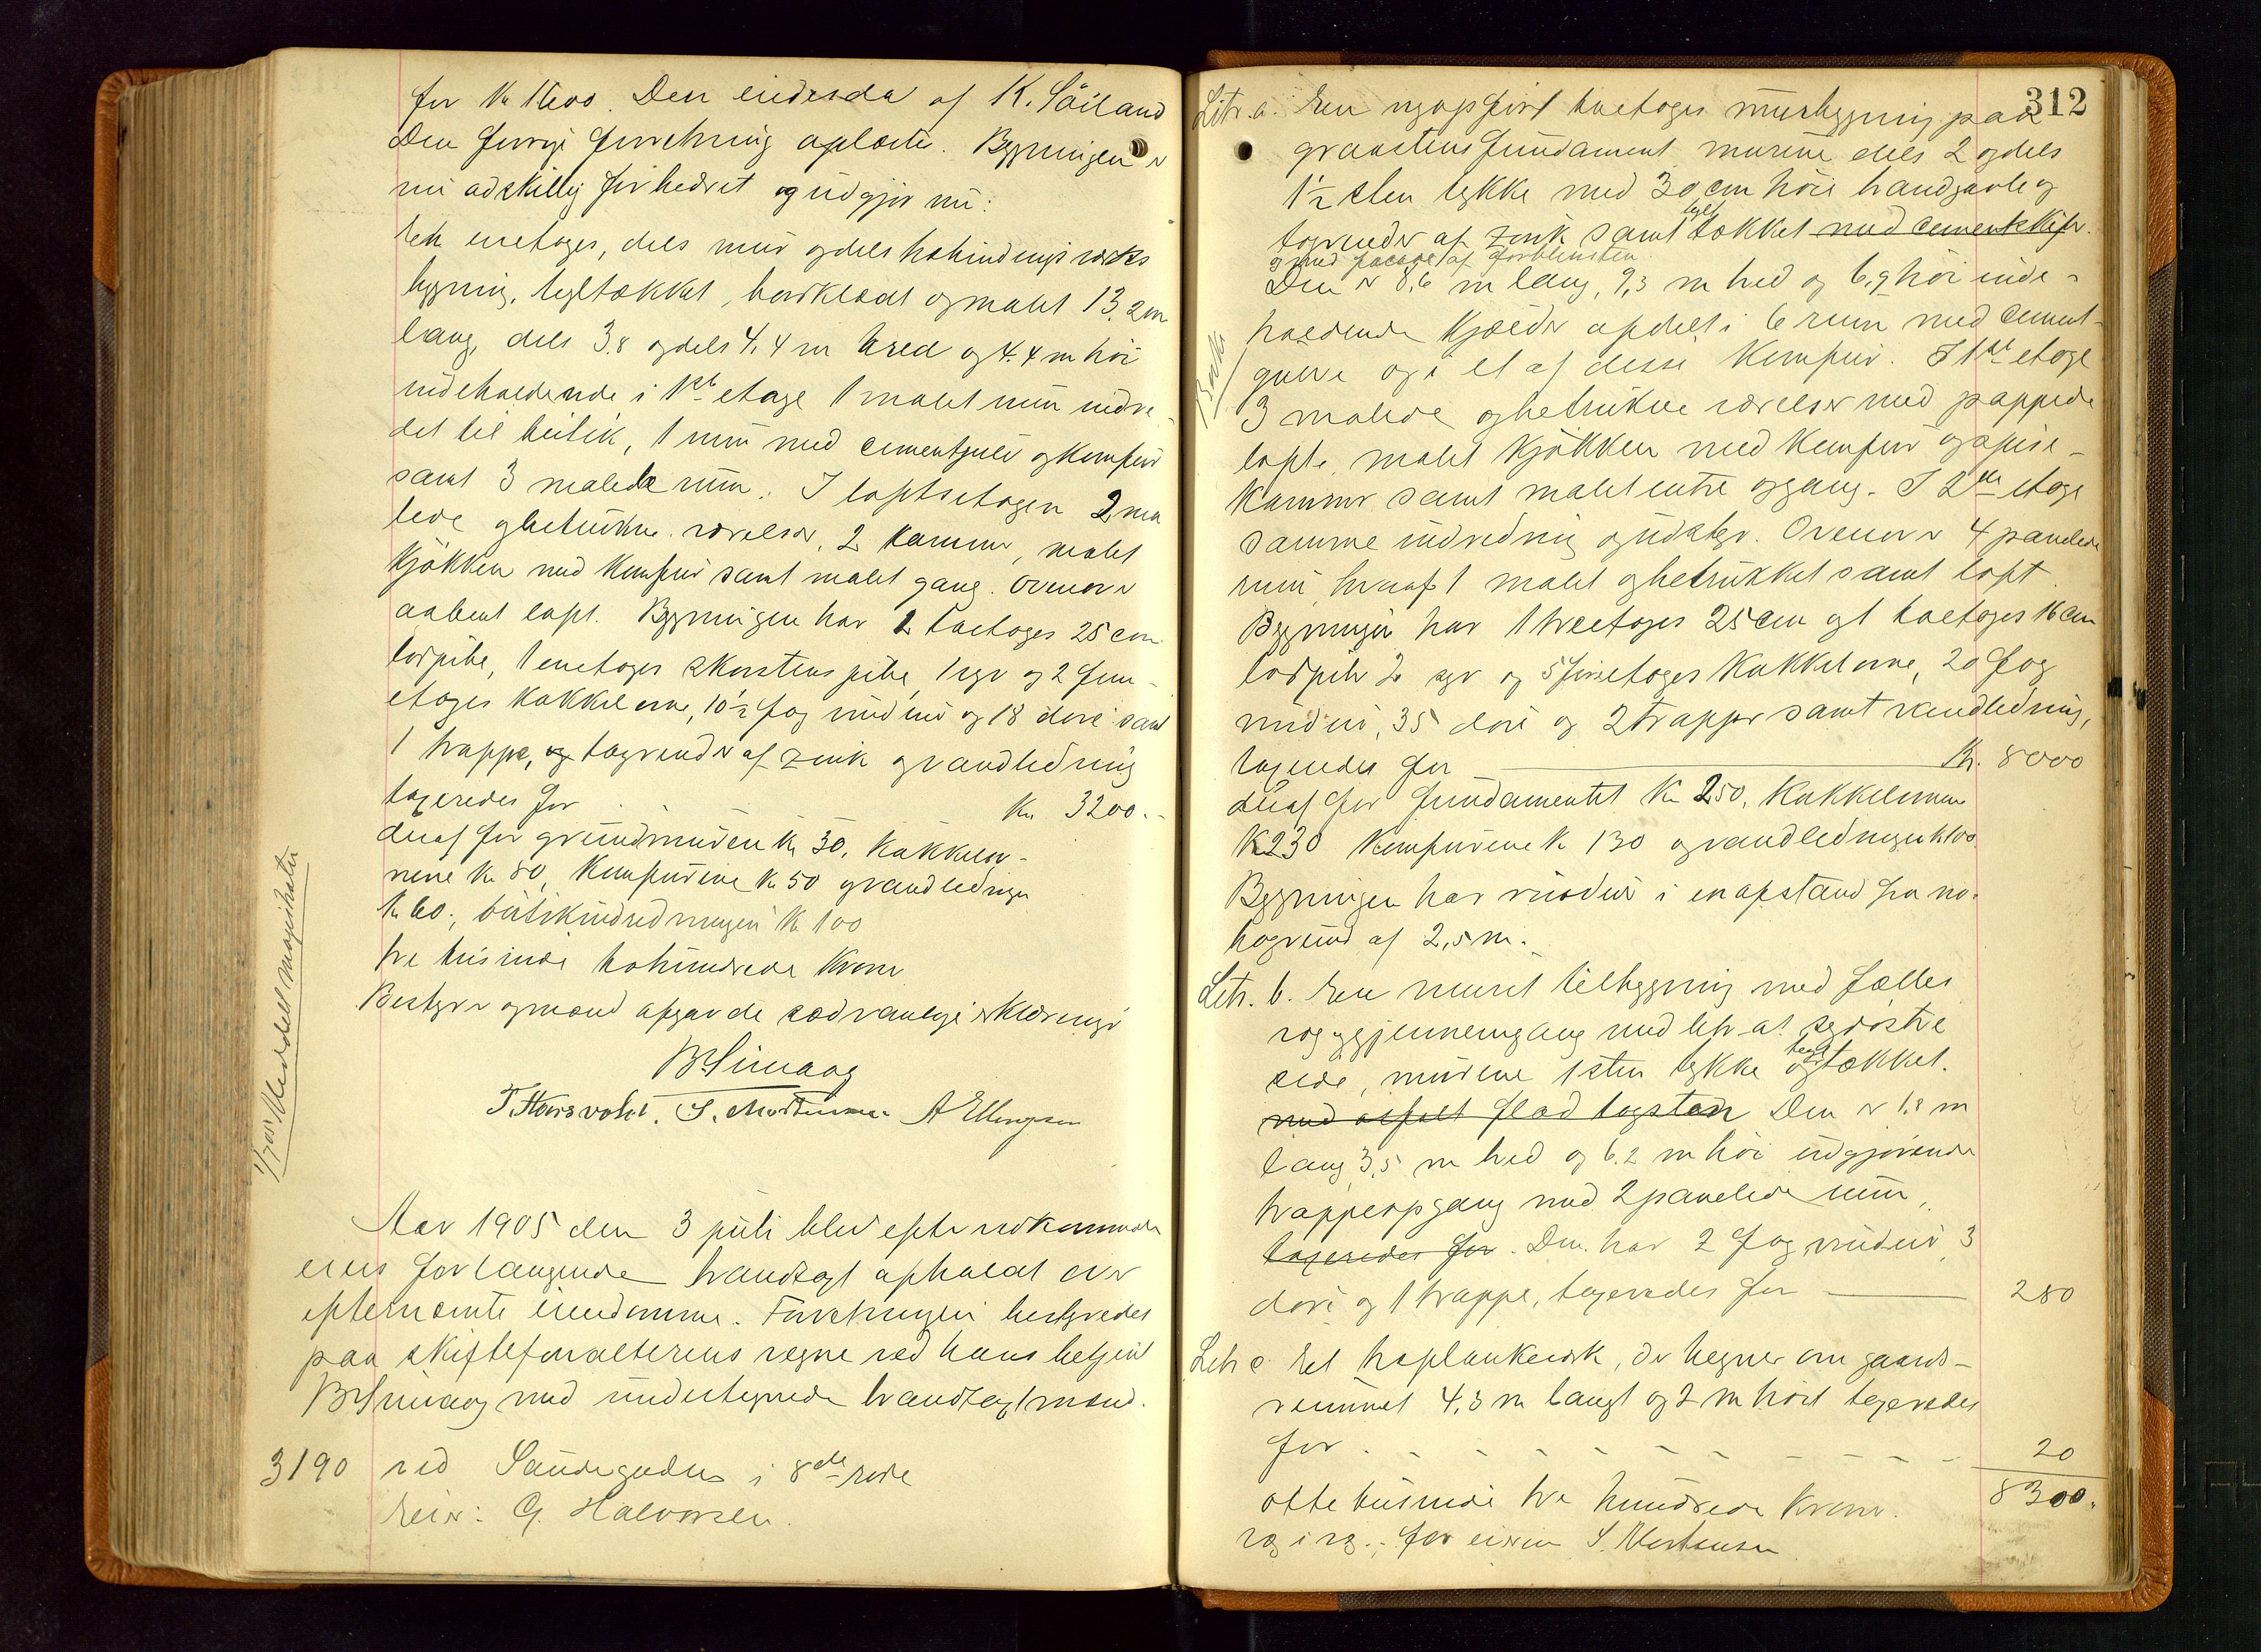 for Kr 1600. Den eiedesda af K. Söiland
Den forrige forretning oplæstes. Bygningen er
nu adskillig forbedret og udgjør nu:
En enetages, dels mur og dels halvbindingsverks
bygning, tegltækket, bordklædt og malet 13.2 m
lang, dels 3.8 og dels 4.4 m bred og 4.4 m høi
indeholdende i 1ste etage 1 malet rum indre-
det til butik, 1 rum med cementgulv og komfur
samt 3 malede rum. I loftsetagen 2 ma
lede og betrukne værelser, 2 kammer, malet
kjøkken med komfur samt malet gang. Ovenover
aabent loft. Bygningen har 2 toetages 25 cm
lodpibe, 1 enetages skorstenspibe, 1 og 2 fem-
etages kakkelovne, 10½ fag vinduer og 18 døre samt
1 trappe, og tagrender af zink og vandledning
taxeredes for Kr. 3200.-
deraf for grundmuren Kr 30, kakkelov-
nene Kr 80, komfurene Kr 50 og vandledningen
Kr 60, butikindredningen Kr 100
tre tusinde tohundrede Kroner
Bestyrer og mænd afgav de sædvanlige erklæringer
B Sunaag
T. Horsvold. S. Mortensen A Ellingsen
1/7 05 Meddelt magistraten
Aar 1905 den 3 juli blev efter vedkommende
eiers forlangende brandtaxt afholdt over
efternævnte eiendomme. Forretningen bestyredes
paa skifteforvalterens vegne ved hans betjent
B Sunaag med undertegnede brandtaxtmænd.
3190 ved Sandsgaden i 8de rode
Eier: G. Halvorsen.
312
Litr. a. En nyopført toetages murbygning paa
graastens fundament murene dels 2 og dels
1½ sten tykke med 30 cm høie brandgavle og
tagrender af zink samt tegltækket med cementskifer.
og med facade af forblendsten
Den er 8,6 m lang, 9,3 m bred og 6,9 høi inde-
holdende kjælder afdelt i 6 rum med cement-
gulve og i et af disse komfur. I 1ste etage
3 malede og betrukne værelser med pappede
lofte, malet kjøkken med komfur og spise-
kammer samt malet entre og gang. I 2den etage
samme indredning og udstyr. Ovenover 4 panelede
rum, hvoraf 1 malet og betrukket samt loft.
Bygningen har 1 treetages 25 cm og 1 toetages 16 cm
lodpibe 2 og 5 fireetages kakkelovne, 20 fag
vinduer, 35 døre og 2 trapper samt vandledning,
taxeredes for Kr. 8000
deraf for fundamentet Kr 250, kakkelovnene
Kr 230 komfurene Kr 130 og vandledningen Kr 100.
Bygningen har vinduer i en afstand fra na-
bogrund af 2,5 m.
Litr. b. En muret tilbygning med fælles
væg og gjennemgang med litr. a's sydøstre
side, murene 1 sten tykke og tegltækket.
med asfalt flad tagsten Den er 1.8 m
lang 3,5 m bred og 6.2 m høi udgjørende
trappeopgang med 2 panelede rum.
taxeredes for. Den har 2 fag vinduer, 3
døre og 1 trappe, taxeredes for 280
Litr c. Et træplankeverk, der hegner om gaards-
rummet 4,3 m langt og 2 m høit taxeredes
for - - - - - - - - 20
8300.
otte tusinde tre hundrede Kroner.
for eieren S. Mortensen